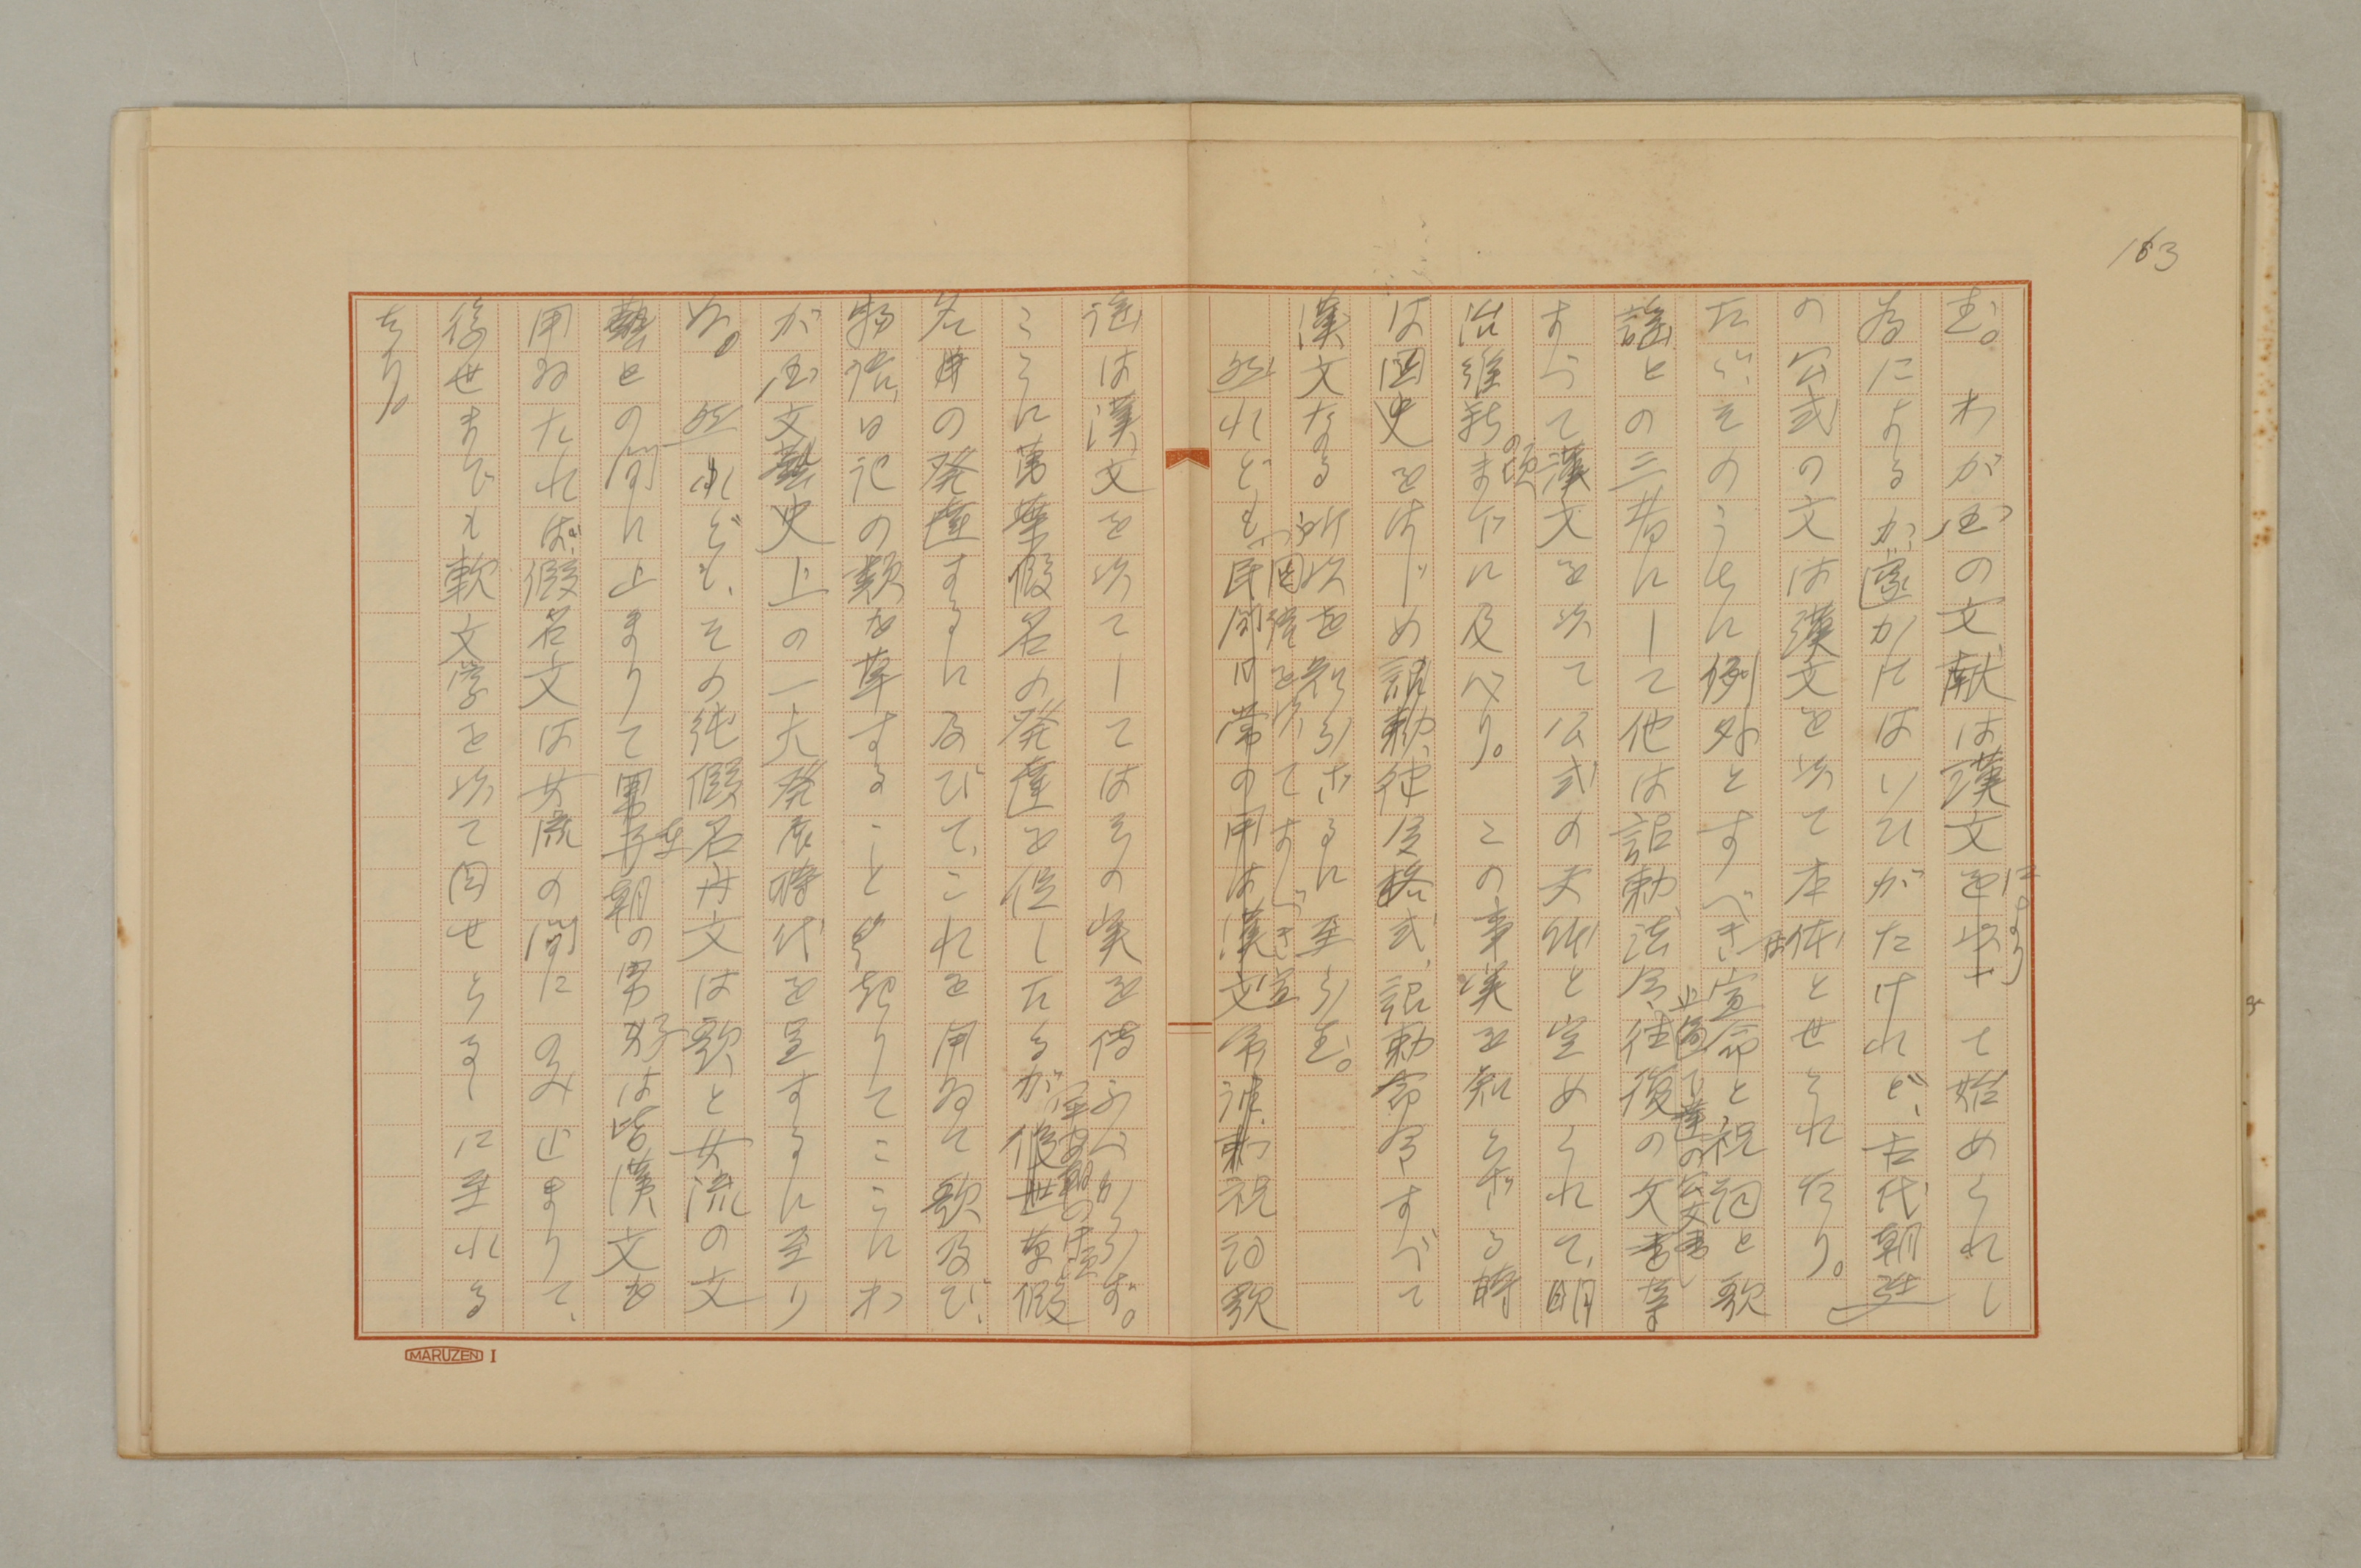 163
む。わが国の文献は漢文により て始められし
為によるか、遽かにはいひがたけれど、古代朝廷
の公式の文は漢文を以て本体とせられたり。
たゞ、そのうちに例外とすべきは宣命と祝詞と歌
謡との三者にして他は詔勅、法令、往復の文書等
上通下達の公文書
すべて漢文を以て公式の文体と定められて、明
治維新の頃まで に及べり。この事実を知らざる時
は国史をはじめ詔勅、律令格式、詔勅命令すべて
漢文なる所以を解らざるに至らむ。
然れども、国語を以てすべき宣命、祝詞、歌
謡は漢文を以てしてはその実を傳ふべからず。
こゝに萬葉假名の発達を促したるが、平安朝の中頃草假
名の発達するに及びて、これを用ゐて歌及び、
物語、日記の類を草すること起りてこゝにわ
が国文藝史上の一大発展時代を呈するに至り
ぬ。然れども、その純假名文は歌と女流の文
藝との間に止まりて 朝の男子は皆漢文を
用ゐたれば、假名文は女流の間にのみ止まりて、
後世までも軟文学を以て目せらるゝに至れる
なり。
MARUZEN I